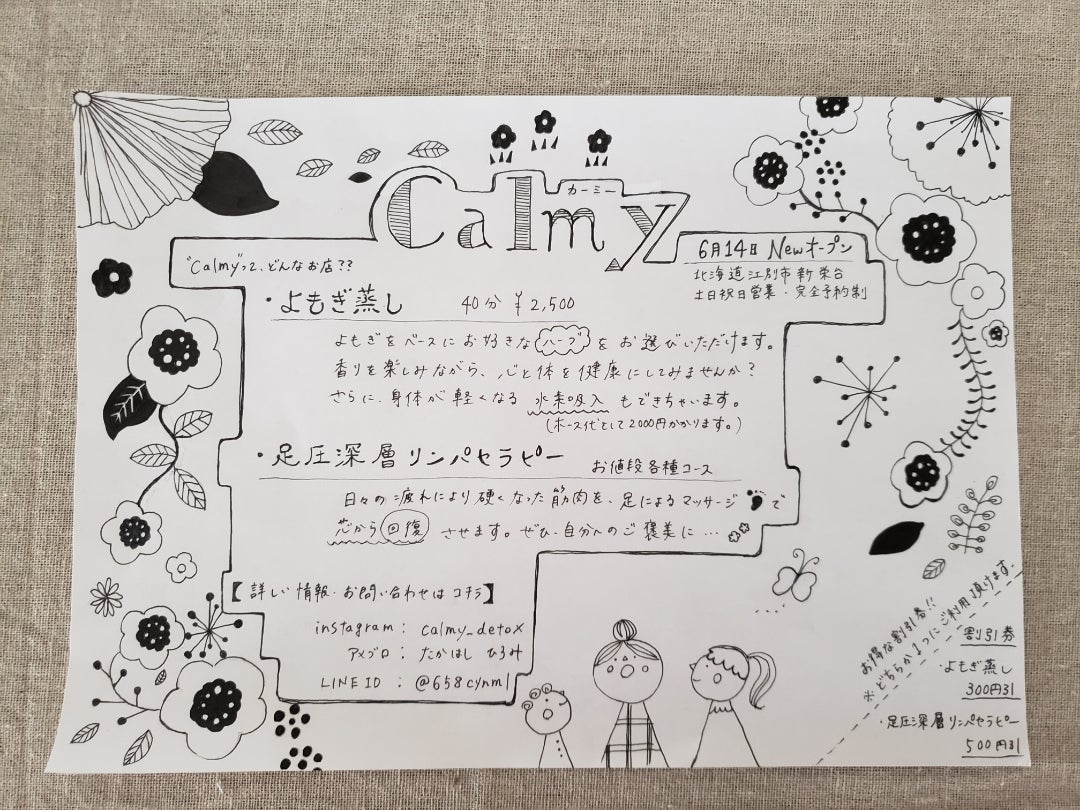 Calmy
カーミー
6月14日 Newオープン
北海道江別市新栄台
土日祝日営業・完全予約制
"Calmy"って、どんなお店??
・よもぎ蒸し 40分 ¥2,500
よもぎをベースにお好きなハーブをお選びいただけます。
香りを楽しみながら、心と体を健康にしてみませんか?
さらに、身体が軽くなる 水素吸入 もできちゃいます。
(ホース代として2000円かかります。)
・足圧深層リンパセラピー お値段各種コース
日々の疲れにより硬くなった筋肉を、足によるマッサージで
芯から回復させます。ぜひ、自分へのご褒美に…
【詳しい情報・お問い合わせはコチラ】
instagram : calmy_detox
アメブロ : たかはし ひろみ
LINE ID : @658cynml
お得な割引券!!
※どちらか1つにご利用頂けます。
割引券
・よもぎ蒸し
300円引
・足圧深層リンパセラピー
500円引